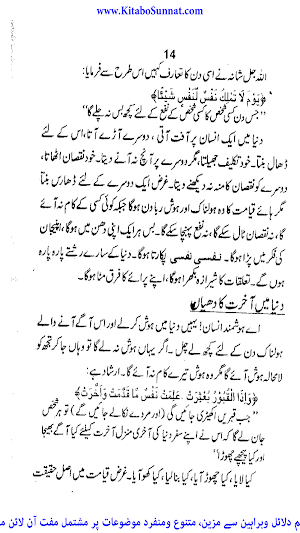 www.KitaboSunnat.com
14
اللہ جل شانہ نے اسی دن کا تعارف کہیں اس طرح سے فرمایا:
﴿يَوْمَ لَا تَمْلِكُ نَفْسٌ لِّنَفْسٍ شَيْئًا﴾
’’جس دن کسی شخص کا کسی شخص کے نفع کے لئے کچھ بس نہ چلے گا‘‘
دنیا میں ایک انسان پر آفت آتی، دوسرے آڑے آتا، اس کے لئے
ڈھال بنتا۔ خود تکلیف جھیلتا، مگر دوسرے پر آنچ نہ آنے دیتا۔ خود نقصان اٹھاتا،
دوسرے کو نقصان کا منہ نہ دیکھنے دیتا۔ غرض ایک دوسرے کے لئے ڈھارس بنتا
مگر ہائے قیامت کا وہ ہولناک اور ہوش ربا دن ہوگا جبکہ کوئی کسی کے کام نہ آئے
گا، نہ نقصان ٹال سکے گا، نہ نفع پہنچا سکے گا۔ بس ہر ایک اپنی دھن میں ہوگا، اپنی جان
کی فکر میں پڑا ہوگا۔ نفسی نفسی پکارتا ہوگا۔ دنیا کے سارے رشتے پارہ پارہ
ہوں گے۔ تعلقات کا شیرازہ بکھرا ہوگا، اپنے پرائے کا فرق مٹا ہوگا۔
دنیا میں آخرت کا دھیان
اے ہوشمند انسان! یہیں دنیا میں ہوش کر لے اور اس آگے آنے والے
ہولناک دن کے لئے کچھ لے چل۔ اگر یہاں ہوش نہ لے گا تو وہاں جا کر تجھ کو
لا محالہ ہوش آئے گا مگر وہ ہوش تیرے کام نہ آئے گا۔ ارشاد ہے:
﴿وَإِذَا الْقُبُورُ بُعْثِرَتْ عَلِمَتْ نَفْسٌ مَّا قَدَّمَتْ وَأَخَّرَتْ﴾
’’جب قبریں اکھیڑی جائیں گی (اور مردے نکالے جائیں گے) تو ہر شخص
جان لے گا کہ اس نے اپنے سفر دنیا کی آخری منزل آخرت کیلئے کیا آگے بھیجا
اور کیا پیچھے چھوڑا‘‘
کیا لایا، کیا چھوڑ آیا، کیا بنا لیا، کیا کھو آیا۔ غرض قیامت میں اصل حقیقت
دلائل وبراہین سے مزین، متنوع ومنفرد موضوعات پر مشتمل مفت آن لائن